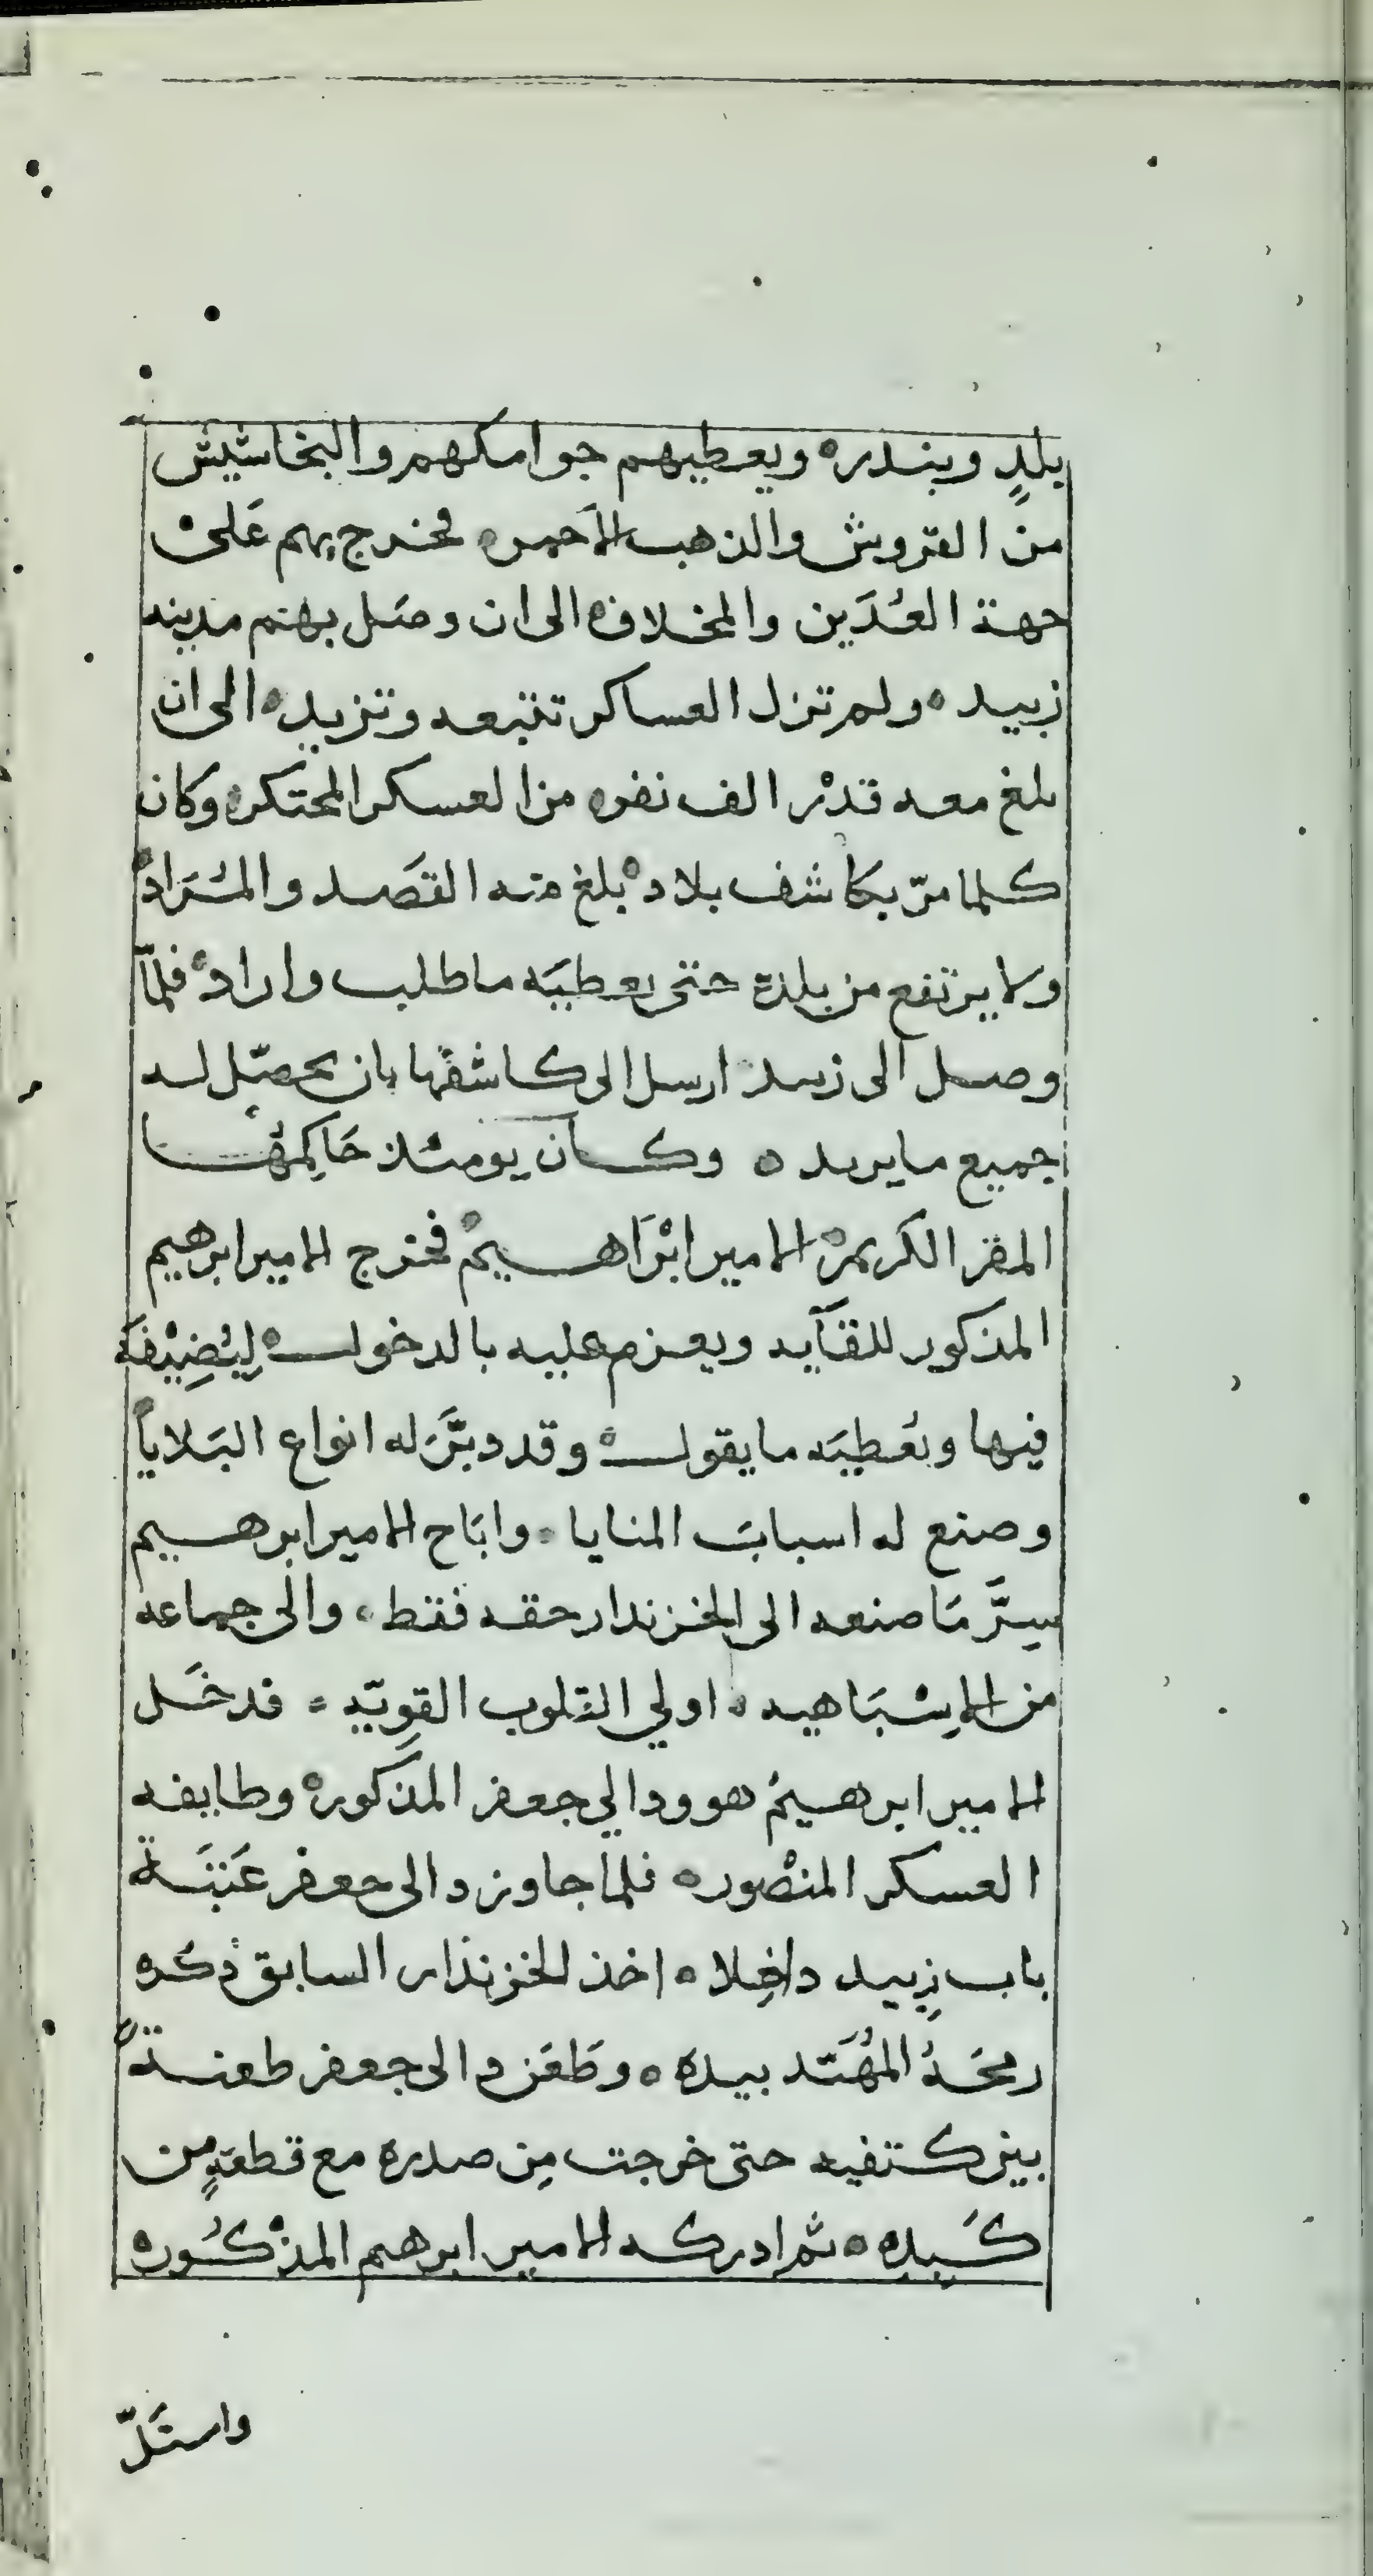 بلدٍ وبندره ويعطيهم جوامكهم والبخاشيش
من القروش والذهب الاَحمره فخرج بهم عَلىٰ
جهة العُدَين والمخلاف ه الى ان وصَل بهم مدينه
زبيد ه ولم تزل العساكر تتبعه وتزيد ه الى ان
بلغ معه قدْر الف نفره من العسكر المحتكره وكان
كلما مرّ بكاشف بلاد ه بلغ منه القصَد والمُرَادْ
ولا يرتفع من بلدة حتى يعطيَه ما طلب واراد ه فلمّآ
وصل الى زبيد ارسل الى كاشفها بان يحصّل له
جميع ما يريد ه وكان يومئذ حَاكِمُها
المقر الكريم ه الامير ابْرَاهيمُ ه فخرج الامير ابرهيم
المذكور للقآيه ويعزم عليه بالدخول ه لِيُضِيْفَهَ
فيها ويُعطيَه ما يقول ه وقد دبَّرَ له انواع البَلاياَ
وصنع له اسبابَ المنايا ه واباَح الامير ابرهيم
سِرَّ مَا صنعه الى الخزندار حقه فقط ه والى جماعه
من الاِسْبَاهيه ه اولي القلوب القوِيّه ه فدخَل
الامير ابرهيمُ هو ووالي جعفر المذكوره وطايفه
العسكر المنْصوره فلما جاوز والى جعفر عَتبَة
باب زبِيد داخِلا ه اخذ الخزندار السابق ذكْره
رمحَهُ المُهَنّد بيدهَ ه وطَعَن والى جعفر طعنةً
بين كتفيه حتى خرجت مِن صدره مع قطعةٍ من
كَبِده ه ثم ادركه الامير ابرهيم المذْكُوره
واستَلّ